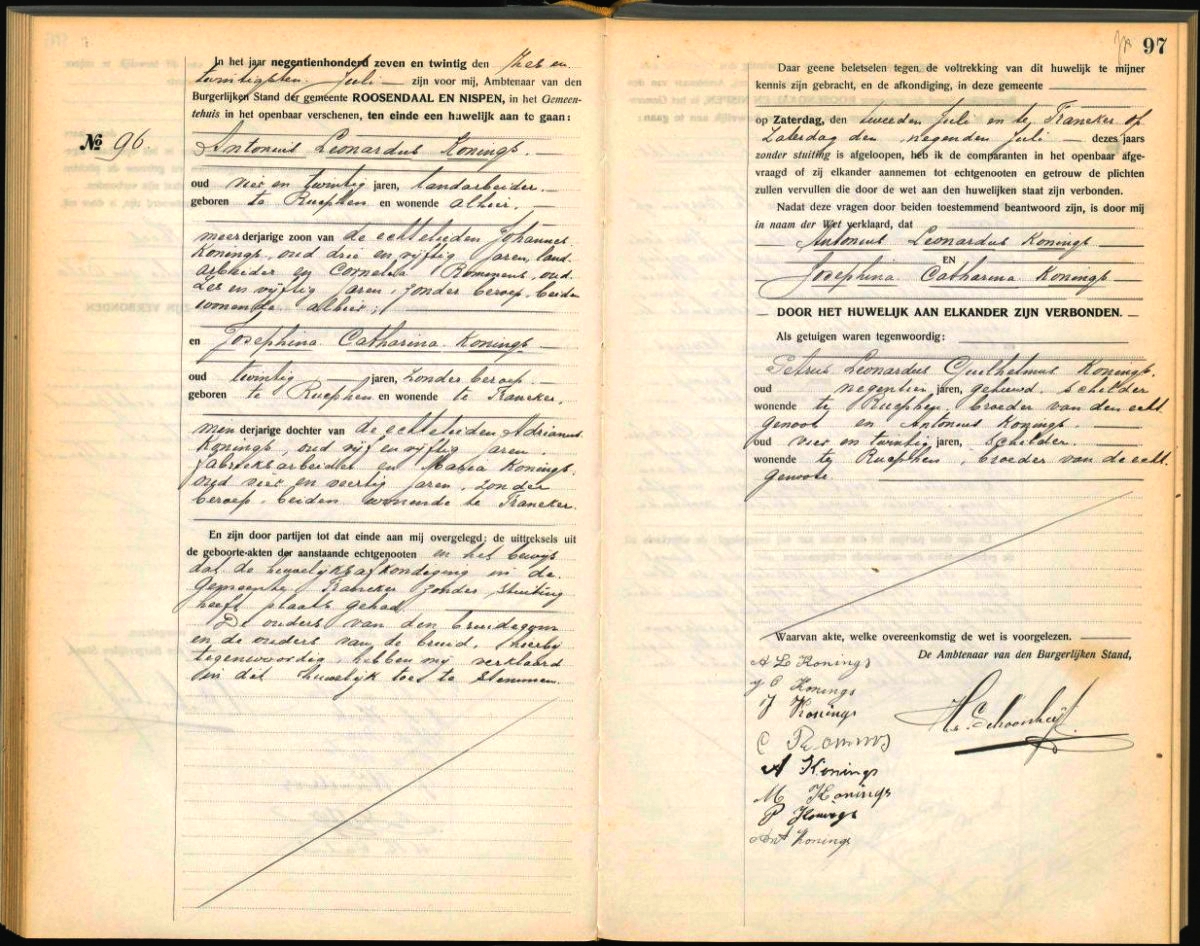 In het jaar negentienhonderd zeven en twintig den zes en
twintigsten Juli zijn voor mij, Ambtenaar van den
Burgerlijken Stand der gemeente ROOSENDAAL EN NISPEN, in het Gemeen-
tehuis in het openbaar verschenen, ten einde een huwelijk aan te gaan:
№ 96
Antonius Leonardus Konings.
oud vier en twintig jaren, landarbeider.
geboren te Rucphen en wonende alhier.
meerderjarige zoon van de echtelieden Johannes
Konings, oud drie en vijftig jaren, land-
arbeider en Cornelia Rommens, oud
zes en vijftig jaren, zonder beroep, beiden
wonende alhier;
en Josephina Catharina Konings
oud twintig jaren, zonder beroep.
geboren te Rucphen en wonende te Franeker.
minderjarige dochter van de echtelieden Adrianus
Konings, oud vijf en vijftig jaren.
fabrieksarbeider en Maria Konings.
oud vier en veertig jaren, zonder
beroep, beiden wonende te Franeker.
En zijn door partijen tot dat einde aan mij overgelegd: de uittreksels uit
de geboorte-akten der aanstaande echtgenooten en het bewijs
dat de huwelijksafkondiging in de
gemeente Franeker zonder stuiting
heeft plaats gehad
De ouders van den bruidegom
en de ouders van de bruid, hierbij
tegenwoordig, hebben mij verklaard
in dit huwelijk toe te stemmen.
97
Daar geene beletselen tegen de voltrekking van dit huwelijk te mijner
kennis zijn gebracht, en de afkondiging, in deze gemeente
op Zaterdag, den tweeden Juli en te Franeker op
Zaterdag den negenden Juli dezes jaars
zonder stuiting is afgeloopen, heb ik de comparanten in het openbaar afge-
vraagd of zij elkander aannemen tot echtgenooten en getrouw de plichten
zullen vervullen die door de wet aan den huwelijken staat zijn verbonden.
Nadat deze vragen door beiden toestemmend beantwoord zijn, is door mij
in naam der Wet verklaard, dat
Antonius Leonardus Konings
EN
Josephina Catharina Konings
DOOR HET HUWELIJK AAN ELKANDER ZIJN VERBONDEN.
Als getuigen waren tegenwoordig:
Petrus Leonardus Guilhelmus Konings.
oud negentien jaren, gehuwd, schilder
wonende te Rucphen, broeder van den echt-
genoot en Antonius Konings.
oud vier en twintig jaren, schilder.
wonende te Rucphen, broeder van de echt-
genoote.
Waarvan akte, welke overeenkomstig de wet is voorgelezen.
De Ambtenaar van den Burgerlijken Stand,
A L Konings
J C Konings
J Konings
C Rommens
A Konings
M Konings
P Konings
Ant Konings